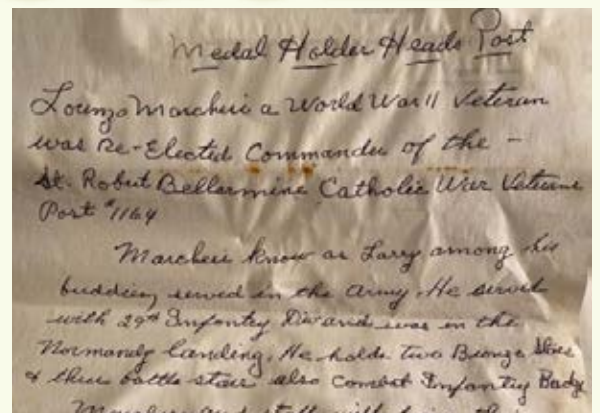 Medal Holder Heads Post
Lorenzo Marcheii a World War II Veteran
was Re-Elected Commander of the -
St. Robert Bellarmine Catholic War Veterans
Post #1164
Marcheii know as Larry among his
buddies served in the Army. He served
with 29th Infantry Div and was in the
Normandy landing. He holds two Bronze Stars
& three battle stars also Combat Infantry Badge